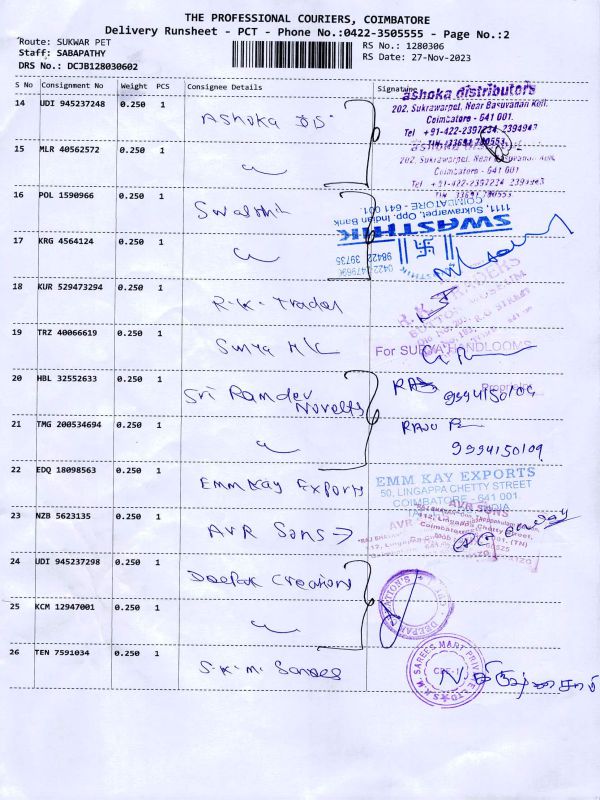 THE PROFESSIONAL COURIERS, COIMBATORE
Delivery Runsheet - PCT - Phone No.:0422-3505555 - Page No.:2
Route: SUKWAR PET
Staff: SABAPATHY
DRS No.: DCJB128030602
RS No.: 1280306
RS Date: 27-Nov-2023
S No Consignment No Weight PCS Consignee Details Signataine
14 UDI 945237248 0.250 1 Ashoka DS
ashoka distributors
202, Sukrawarpet, Near Basuvanali Koil,
Coimbatore - 641 001.
Tel +91-422-2397234, 2394943
15 MLR 40562572 0.250 1
202, Sukrawarpet, Near
Coimbatore - 641 001
Tel +91-422-2397234 2394943
16 POL 1590966 0.250 1 Swasthik
SWASTHIK
1111, Sukrawarpet, Opp. Indian Bank
COIMBATORE - 641 001.
98422 39735
17 KRG 4564124 0.250 1
18 KUR 529473294 0.250 1 R.K. Trades
19 TRZ 40066619 0.250 1 Surya H/L
For SURYA HANDLOOMS
Proprietor
20 HBL 32552633 0.250 1 Sri Ramdev Novelts
9994150109
21 TMG 200534694 0.250 1
RAJU
9994150109
22 EDQ 18098563 0.250 1 Emm Kay Exports
EMM KAY EXPORTS
50, LINGAPPA CHETTY STREET
COIMBATORE - 641 001.
23 NZB 5623135 0.250 1 AVR Sons
AVR SONS
24 UDI 945237298 0.250 1 Deepak Creations
25 KCM 12947001 0.250 1
26 TEN 7591034 0.250 1 S.K.M. Sarees